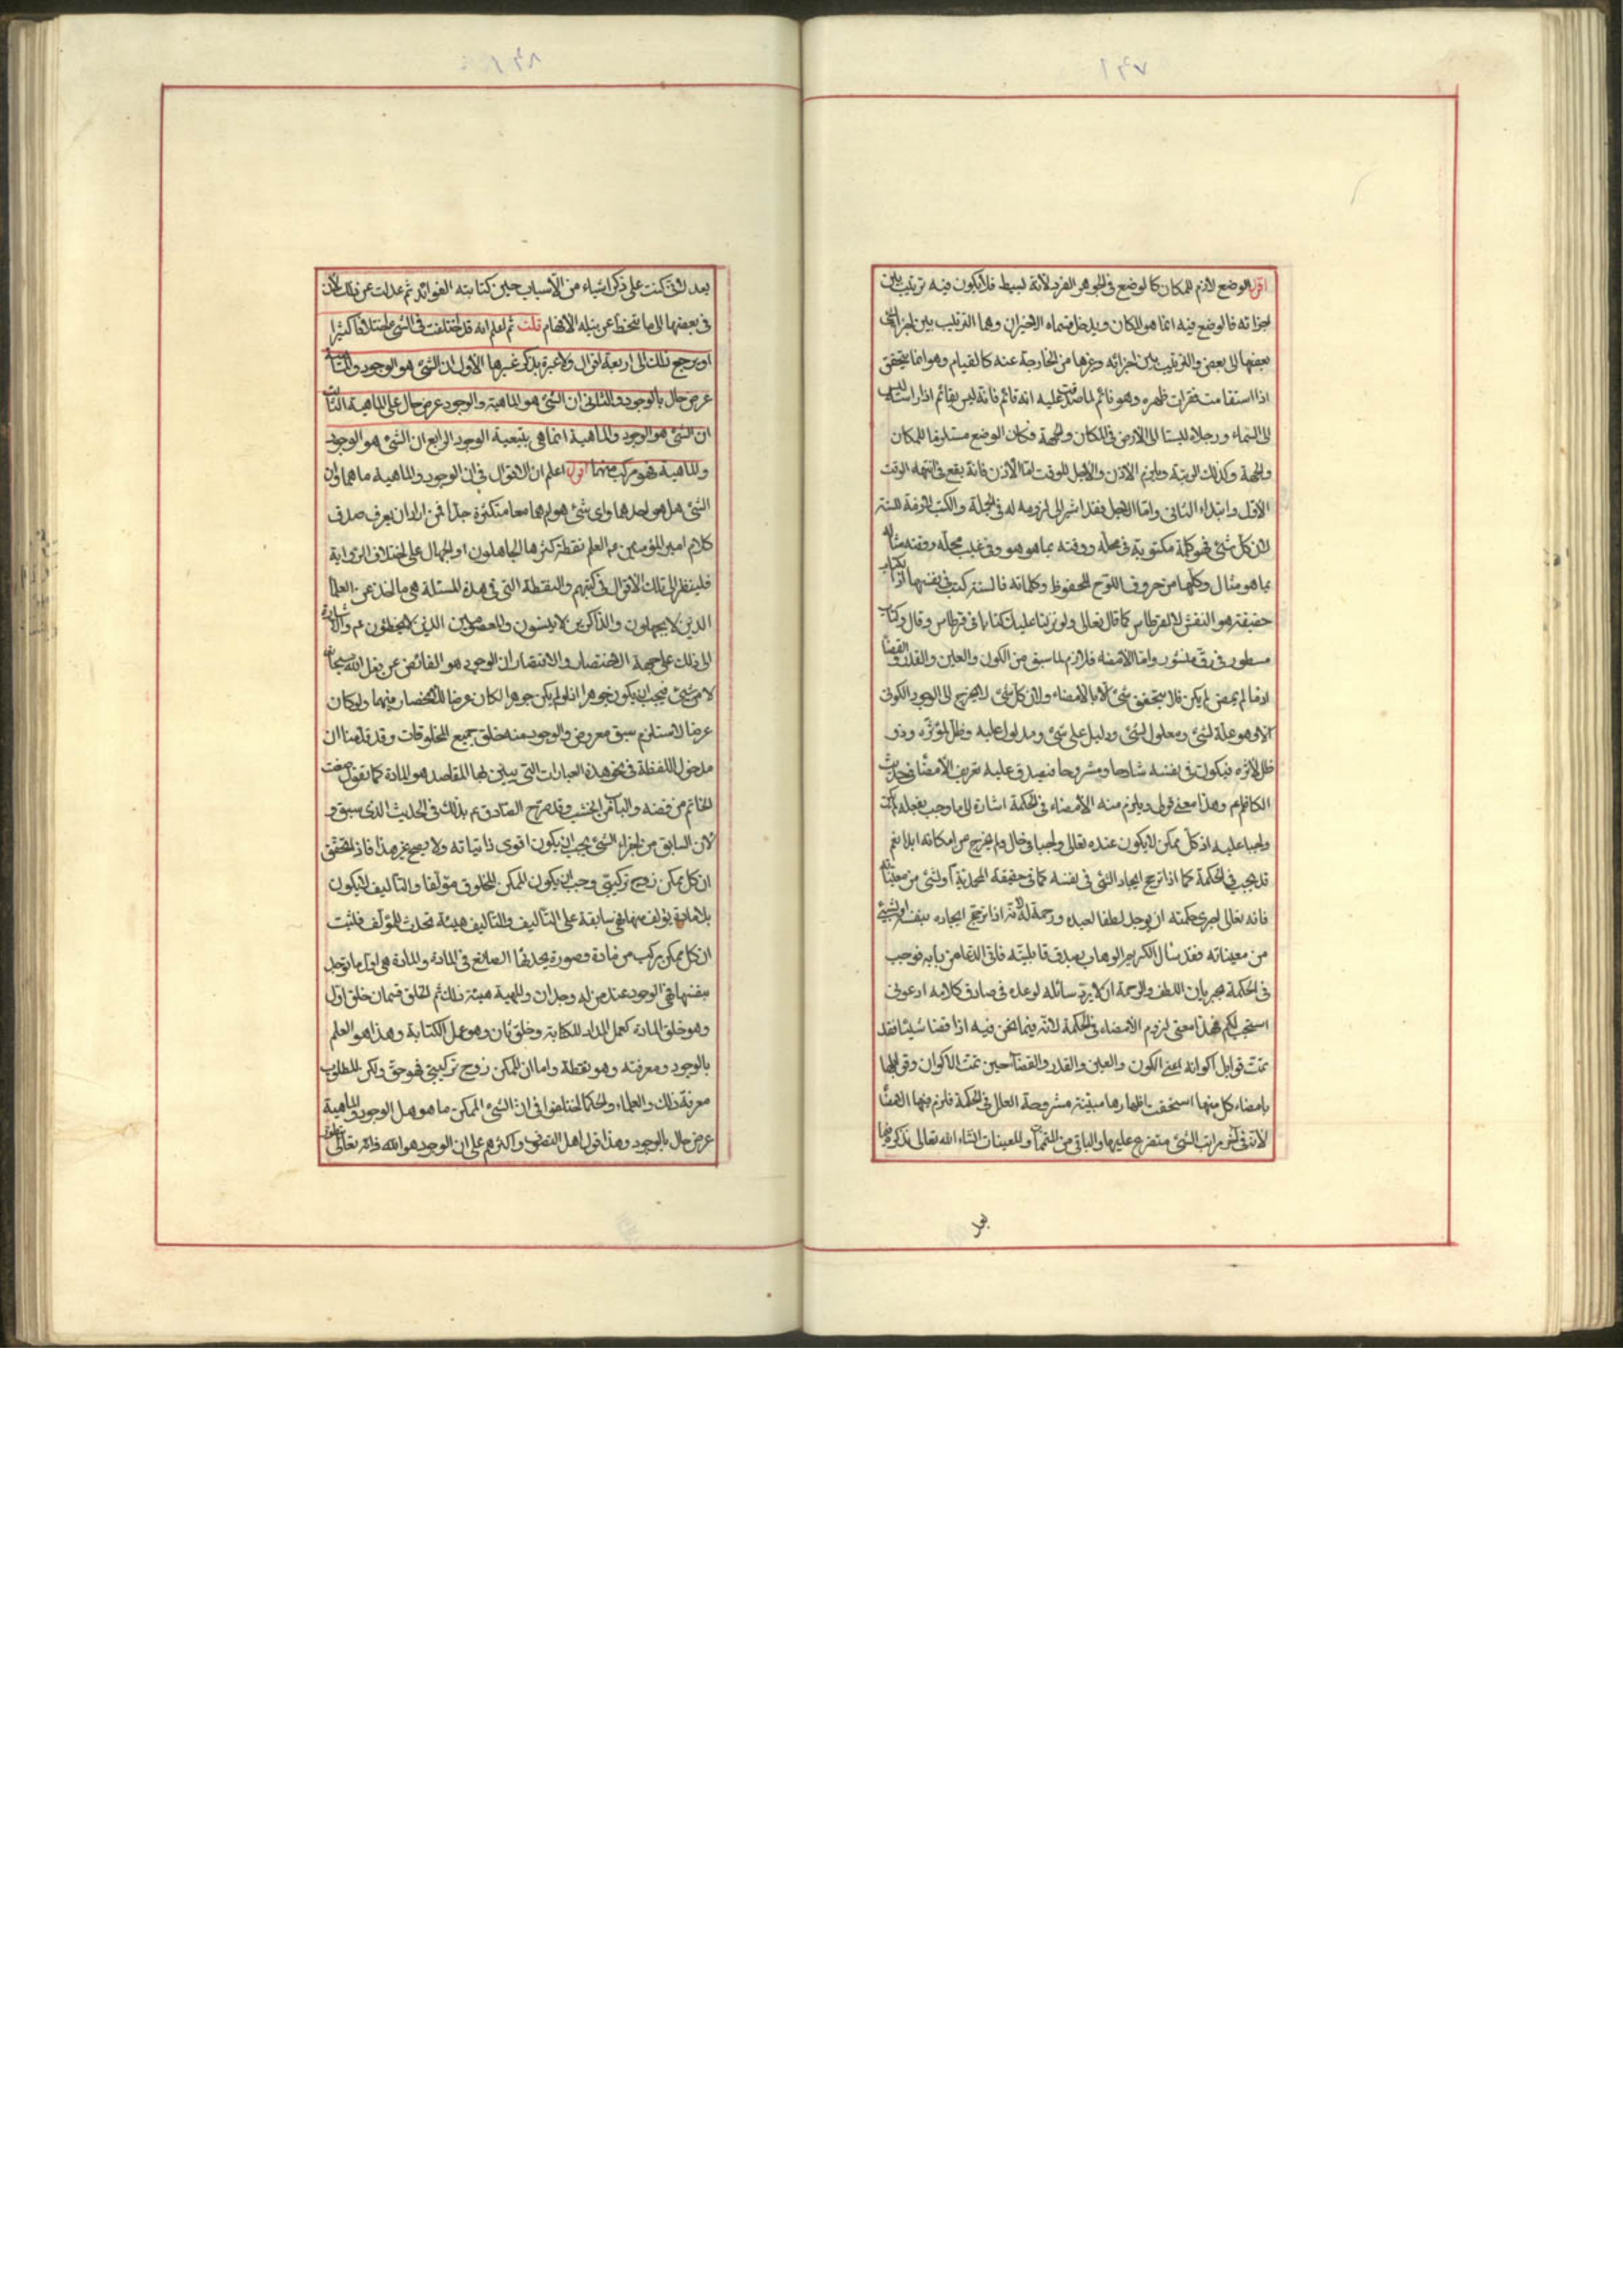 اقول الوضع لازم للمكان كالوضع فى الجوهر الفرد لانه بسيط فلا يكون فيه ترتيب بين
اجزائه فالوضع فيه انما هو المكان ويدخل قسماه الاخيران وهما الترتيب بين اجزاء الشئ
بعضها الى بعض والترتيب بين اجزائه وغيرها من الخارجة عنه كالقيام وهو انما يتحقق
اذا استقامت فقرات ظهره وهو قائم لما صدق عليه انه قائم فانه ليس بقائم اذا راسه ليس
الى السماء ورجلاه ليستا الى الارض فى المكان والجهة فكان الوضع مستلزما للمكان
والجهة وكذلك الرتبة ويلزم الاذن والاجل للوقت امّا الاذن فانه يقع فى انتهاء الوقت
الاول وابتداء الثانى وامّا الاجل فقد اشير الى لزومه له فى الجملة والكتب لازمة للستة
لان كل شئ فهو كلمة مكتوبة فى محله ووقته بما هو هو وفى غيب محله ووقته مثاله
بما هو مثال وكلها من حروف اللوح المحفوظ وكلماته فالستة كتب فى نفسها اذ الكتاب
حقيقة هو النقش لا القرطاس كما قال تعالى ولو نزلنا عليك كتابا فى قرطاس وقال وكتاب
مسطور فى رق منشور وامّا الامضاء فلازم لما سبق من الكون والعين والقدر والقضاء
اذ ما لم يمض لم يكن فلا يتحقق شئ الا بالامضاء ولان كل شئ لا يخرج الى الوجود الكونى
الا وهو علة لشئ ومعلول لشئ ودليل على شئ ومدلول عليه وظل لمؤثره وذو
ظل لاثره فيكون فى نفسه شارحا ومشروحا فيصدق عليه تعريف الامضاء فى حديث
الكاظم عم وهذا معنى قولى ويلزم منه الامضاء فى الحكمة اشارة الى ما وجب بفعله لم يكن
واجبا عليه اذ كل ممكن لا يكون عنده تعالى واجبا فى حال ولم يخرج من امكانه ابدا نعم
قد يجب فى الحكمة كما اذا ترجح ايجاد الشئ فى نفسه كما فى حقيقة المحمدية او لشئ من معيناته
فانه تعالى اجرى حكمته ان يوجد لطفا لعبده ورحمة له لانه اذا ترجح ايجاده بنفسه او لشئ
من معيناته فقد سأل الكريم الوهاب بصدق قابليته فاتى الدعاء من بابه فوجب
فى الحكمة بجريان اللطف والرحمة ان لا يرد سائله لوعده فى صادق كلامه ادعونى
استجب لكم فهذا معنى لزوم الامضاء فى الحكمة لانه فيما نحن فيه اذا قضا شيئا فقد
تمّت قوابل اكوانه اعنى الكون والعين والقدر والقضاء حين تمت الاكوان وقوابلها
بامضاء كل منها استحقت باظهارها مبيّنة مشروحة العلل فى الحكمة فلزم منها الامضاء
لانه فى آخر مراتب الشئ متفرع عليها والباقى من المتممات والمعينات انشاء الله تعالى نذكره فيما
بعد
بعد لانى كنت على ذكر اشياء من الاسباب حين كتابته الفوائد ثم عدلت عن ذلك لان
فى بعضها الى ما ينحط عن نيله الافهام قلت ثم اعلم انه قد اختلفت فى الشئ اختلافا كثيرا
او يرجع ذلك الى اربعة اقوال ولا عبرة بذكر غيرها الاول ان الشئ هو الوجود والماهية
عرض حال بالوجود والثانى ان الشئ هو الماهية والوجود عرض حال على الماهية الثالث
ان الشئ هو الوجود والماهية انما هى بتبعية الوجود الرابع ان الشئ هو الوجود
والماهية فهو مركب منهما اقول اعلم ان الاقوال فى ان الوجود والماهية ما هما وان
الشئ هل هو احدهما واى شئ هو ام هما معا متكثرة جدا فمن اراد ان يعرف صدق
كلام امير المؤمنين عم العلم نقطة كثرها الجاهلون او الجهال على اختلاف الرواية
فلينظر الى تلك الاقوال فى كتبهم والنقطة التى فى هذه المسئلة هى ما اخذ عن العلماء
الذين لا يجهلون والذاكرين لا ينسون والمعصومين الذين لا يخطئون عم والاشارة
الى ذلك على جهة الاختصار والاقتصار ان الوجود هو الفائض عن فعل الله سبحانه
لا من شئ فيجب ان يكون جوهرا اذ لو لم يكن جوهرا لكان عرضا للانحصار فيهما ولو كان
عرضا لاستلزم سبق معروض والوجود منه خلق جميع المخلوقات وقد قدّمنا ان
مدخول اللفظة فى نحو هذه العبارات التى يبيّن بها المقاصد هو المادة كما تقول صغت
الخاتم من فضة والباب من الخشب وقد صرح الصادق عم بذلك فى الحديث الذى سبق و
لان السابق من اجزاء الشئ يجب ان يكون اقوى ذاتياته ولا يصح غير هذا فاذا تحقق
ان كل ممكن زوج تركيبى وجب ان يكون الممكن المخلوق مؤلفا والتأليف لا يكون
بلا مادة يؤلف منها فهى سابقة على التأليف والتأليف هيئة تحدث للمؤلف فثبت
ان كل ممكن مركب من مادة وصورة يحدثها الصانع فى المادة والمادة هى اول ما توجد
بنفسها فهى الوجود عند من له وجدان والمهية هيئة ذلك ثم الخلق قسمان خلق اول
وهو خلق المادة كعمل المداد للكتابة وخلق ثان وهو عمل الكتابة وهذا هو العلم
بالوجود ومعرفته وهو نقطة واما ان الممكن زوج تركيبى فهو حق ولكن المطلوب
معرفة ذلك والعلماء والحكماء اختلفوا فى ان الشئ الممكن ما هو هل الوجود والماهية
عرض حال بالوجود وهذا قول اهل التصوف واكثرهم على ان الوجود هو الله فانه تعالى